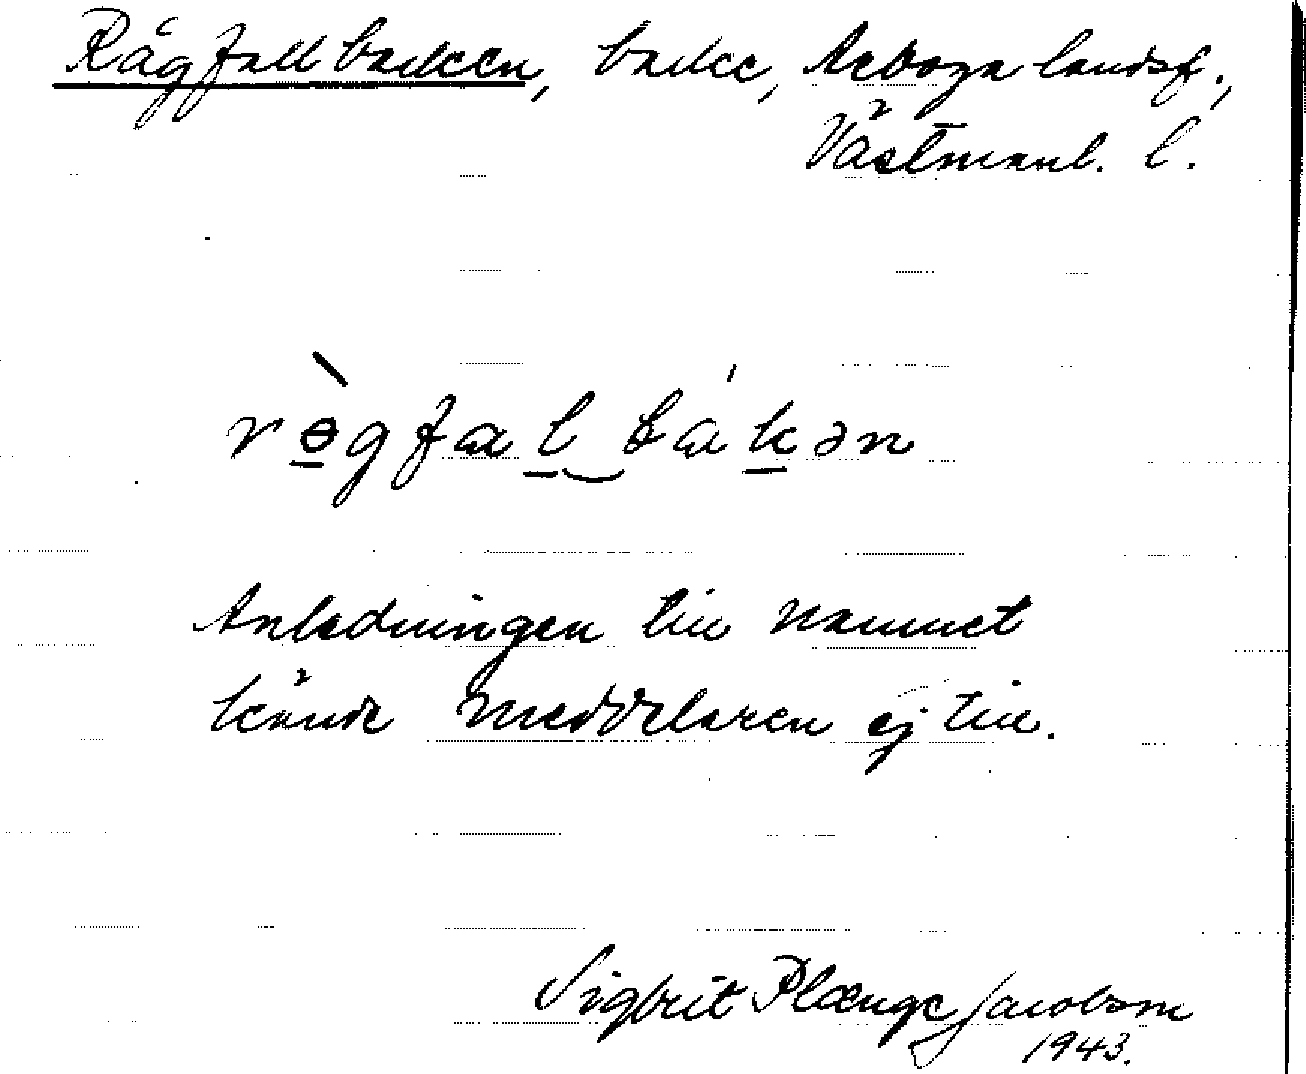 Rågfallbacken, backe, Arboga landsf.,
Västmanl. l.
rə̀gfal̠‿bák̠ən
Anledningen till namnet
kände meddelaren ej till.
Sigbrit Plænge Jacobson
1943.